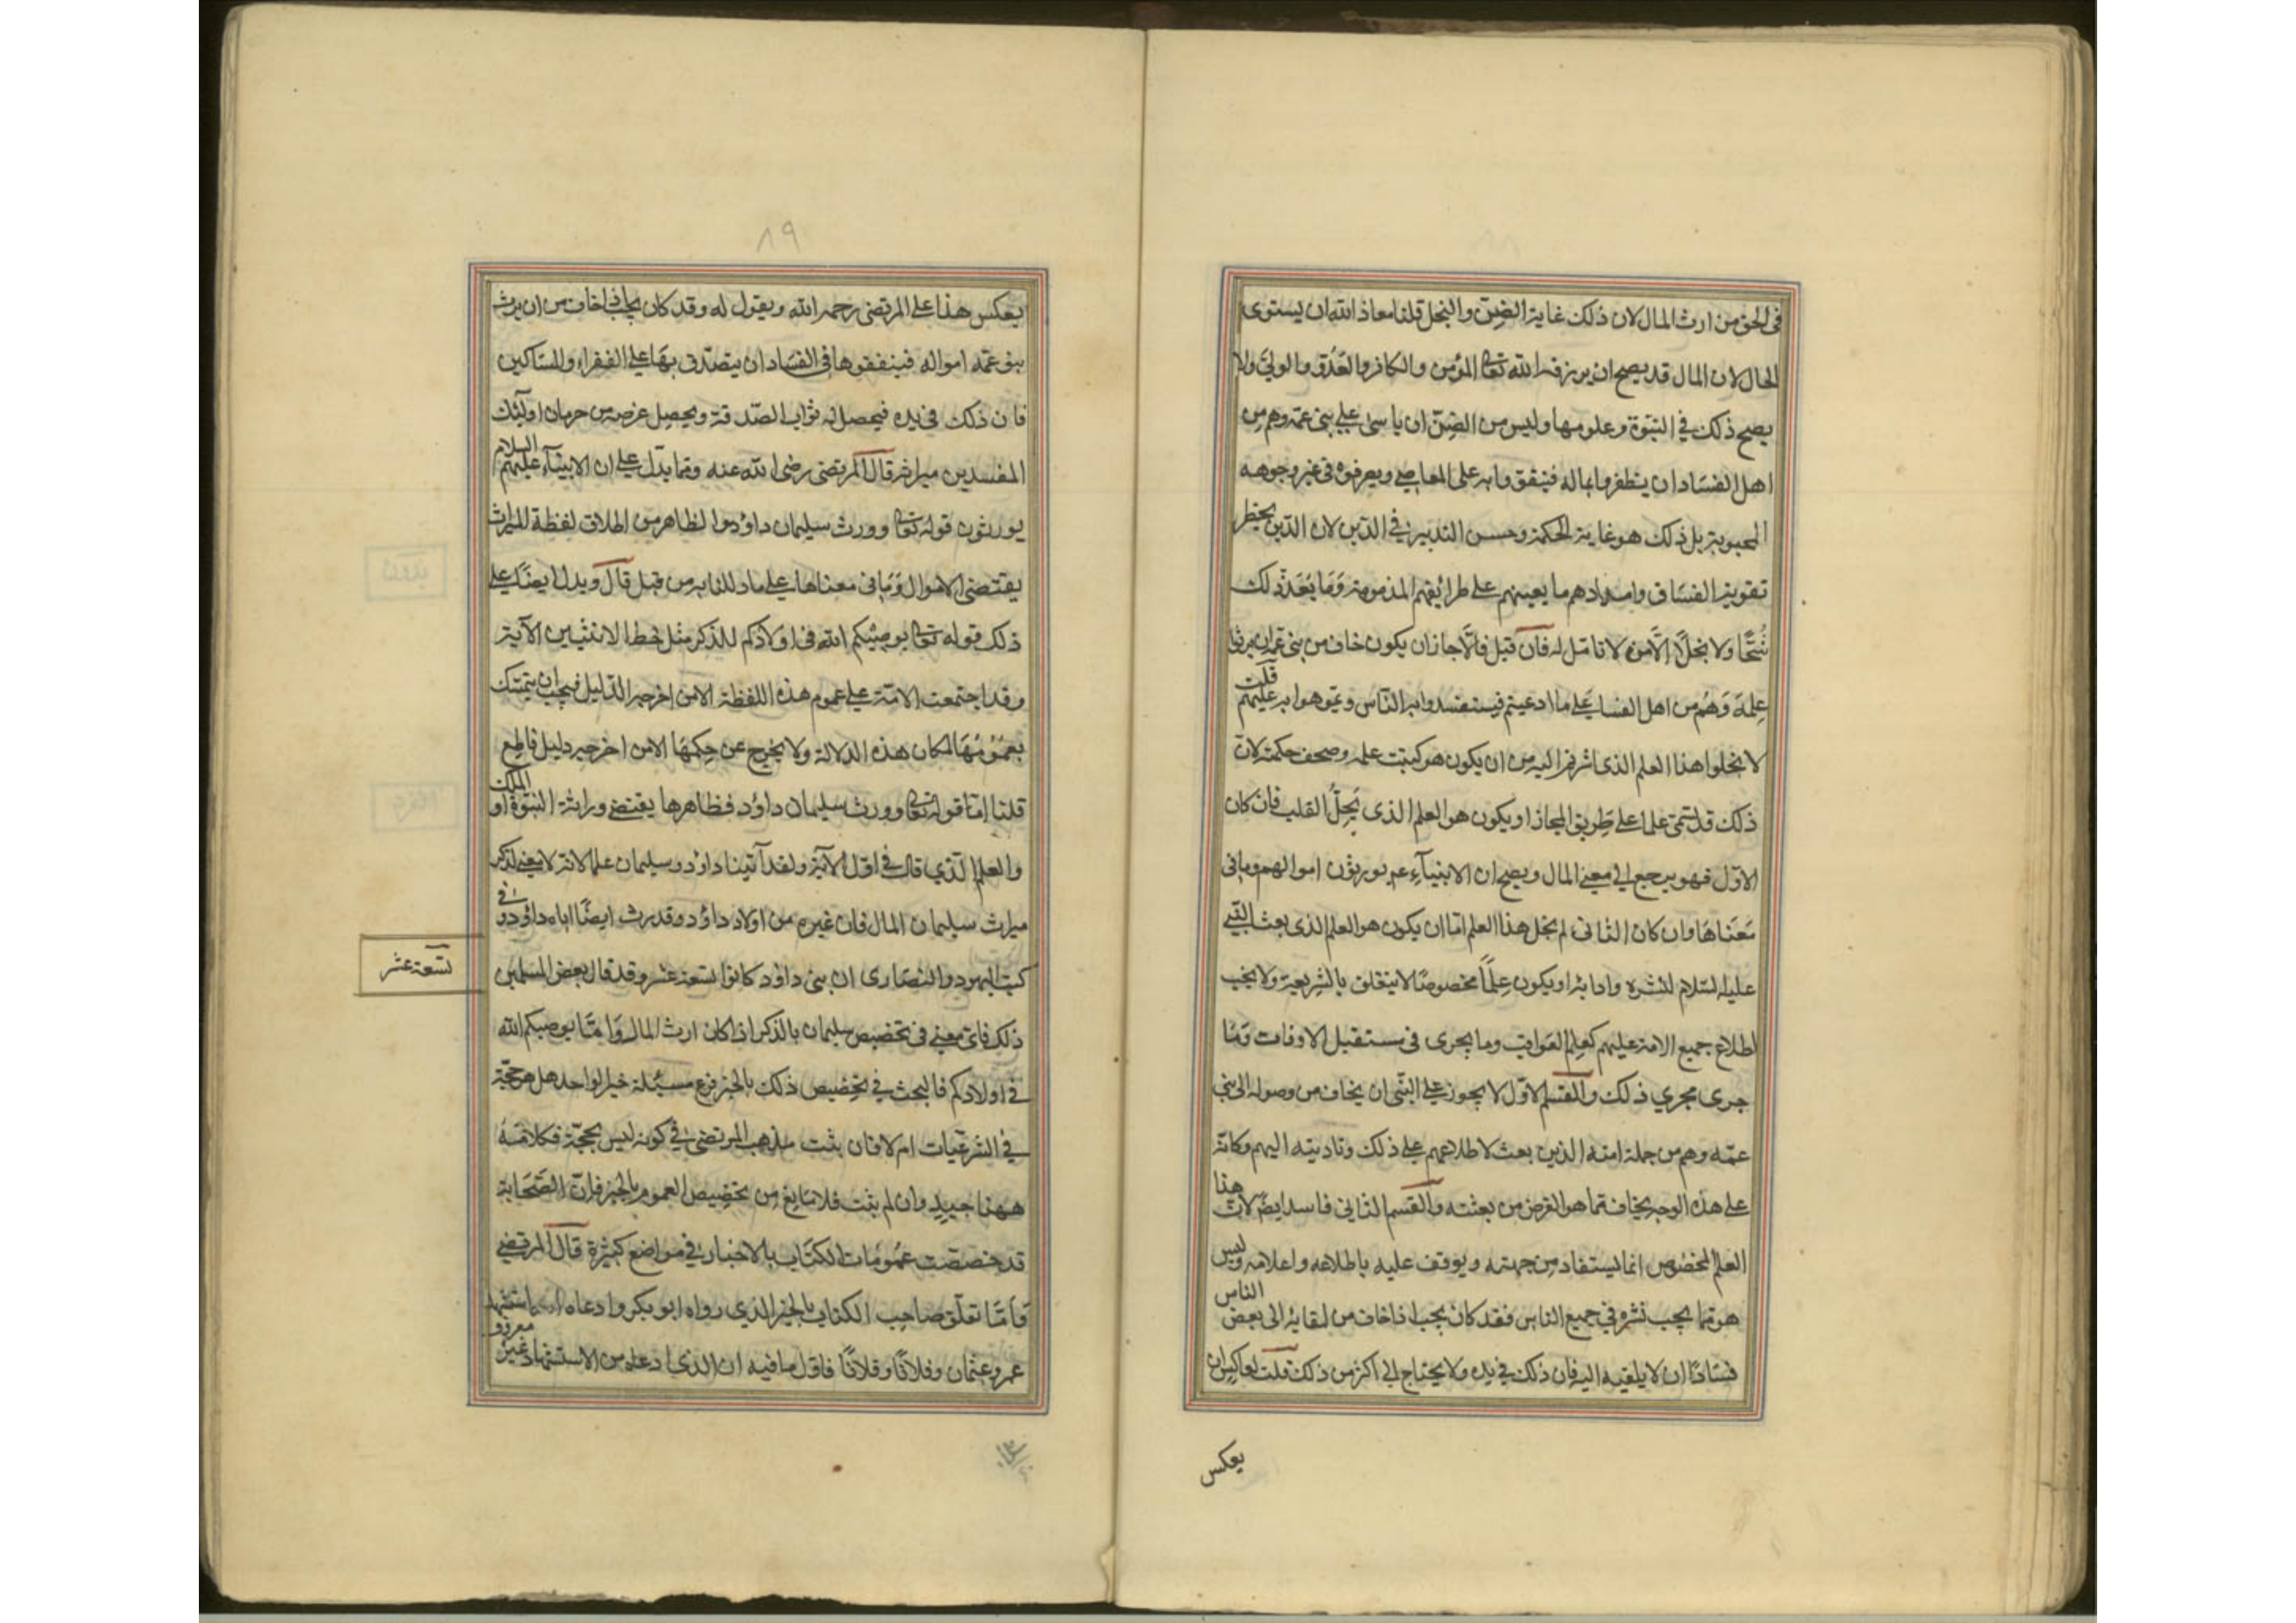 فى الحق من ارث المال لان ذلك غاية الضنّ والبخل قلنا معاذ الله ان يستوى
الحال لان المال قد يصح ان يرزقه الله تعا المؤمن والكافر والعدو والولي ولا
يصح ذلك في النبوة وعلومها وليس من الضنّ ان ياسى على بنى عمه وهم من
اهل الفساد ان يظفروا بماله فينفقوا به على المعاصى ويصرفوه فى غير وجوهه
المحبوبة بل ذلك هو غاية الحكمة وحسن التدبير في الدين لان الدين يحظر
تقوية الفساق وامدادهم ما يعينهم على طرائقهم المذمومة وما يعد ذلك
شحًّا ولا بخلًا الّا من لا تامّل له فان قيل فالّا جاز ان يكون خاف من بنى عمه ان يرثوا
علمه وهم من اهل الفساد على ما ادعيتم فيستفسدوا به الناس ويموهوا به عليهم قلت
لا يخلوا هذا العلم الذى اشرتم اليه من ان يكون هو كتبت علمه وصحف حكمته لان
ذلك قد يسمى علما على طريق المجاز او يكون هو العلم الذى يحلّ القلب فان كان
الاوّل فهو يرجع الي معنى المال ويصح ان الانبياء عم يورثون اموالهم وما فى
معناها وان كان الثانى لم يخل هذا العلم امّا ان يكون هو العلم الذى بعث النبي
عليه السلام لنشره وادائه او يكون علمًا مخصوصًا لا يتعلق بالشريعة ولا يجب
اطلاع جميع الامة عليهم كعلم العواقب وما يجرى فى مستقبل الاوقات وما
جرى مجري ذلك والقسم الاوّل لا يجوز على النّبى ان يخاف من وصوله الى بنى
عمّه وهم من جملة امته الذين بعث لاطلاعهم على ذلك وتاديته اليهم وكانه
على هذه الوجه يخاف مما هو الغرض من بعثته والقسم الثانى فاسد ايضًا لان هذا
العلم المخصوص انما يستفاد من جهته ويوقف عليه باطلاعه واعلامه وليس
هو مما يجب نشره في جميع الناس فقد كان يجب اذا خاف من لقايه الى بعض الناس
فسادًا ان لا يلقيه اليه فان ذلك في يده ولا يحتاج الي اكثر من ذلك قلت لعاكس ان
يعكس
٨٩
يعكس هذا على المرتضى رحمه الله ويقول له وقد كان يجب اذا خاف من ان يرث
بنو عمّه امواله فينفقوها فى الفساد ان يتصدّق بها على الفقراء والمساكين
فان ذلك فى يده فيحصل له ثواب الصّدقة ويحصل غرضه من حرمان اولئك
المفسدين ميراثه قال المرتضى رضى الله عنه ومما يدلّ على ان الانبياء عليهم السلام
يورثون قوله تعا وورث سليمان داود والظاهر من اطلاق لفظة الميراث
يقتضى الاموال وما فى معناها على ما دللنا به من قبل قال ويدل ايضًا على
ذلك قوله تعا يوصيكم الله فى اولادكم للذكر مثل حظ الانثيين الآية
وقد اجتمعت الامّة على عموم هذه اللفظة الا من اخرجه الدّليل فيجب ان يتمسّك
بعمومها لمكان هذه الدلالة ولا يخرج عن حكمها الا من اخرجه دليل قاطع
قلنا امّا قوله تعا وورث سليمان داود فظاهرها يقتضى وراثة النبوّة او الملك
والعلم الّذي قال في اوّل الآية ولقد آتينا داود وسليمان علما لانه لا معنى لذكر
ميراث سليمان المال فان غيره من اولاد داود قد ورث ايضًا اباه داود وفي
كتب اليهود والنصارى ان بنى داود كانوا تسعة عشر وقد قال بعض المسلمين
تسعة عشر
ذلك فاىّ معنى فى تخصيص سليمان بالذكر اذا كان ارث المال وامّا يوصيكم الله
في اولادكم فالبحث في تخصيص ذلك بالخبر فرع مسئلة خبر الواحد هل هو حجّة
في الشرعيات ام لا فان يثبت مذهب المرتضى في كونه ليس بحجّة فكلامه
ههنا جيد وان لم يثبت فلا مانع من تخصيص العموم بالخبر فانّ الصّحابة
قد خصصّت عمومات الكتاب بالاخبار في مواضع كثيرة قال المرتضى
فامّا تعلّق صاحب الكتاب بالخبر الذي رواه ابو بكر وادعاه استشهد
عمر وعثمان وفلانًا وفلانًا فاول ما فيه ان الذى ادعاه من الاستشهاد غير معروف